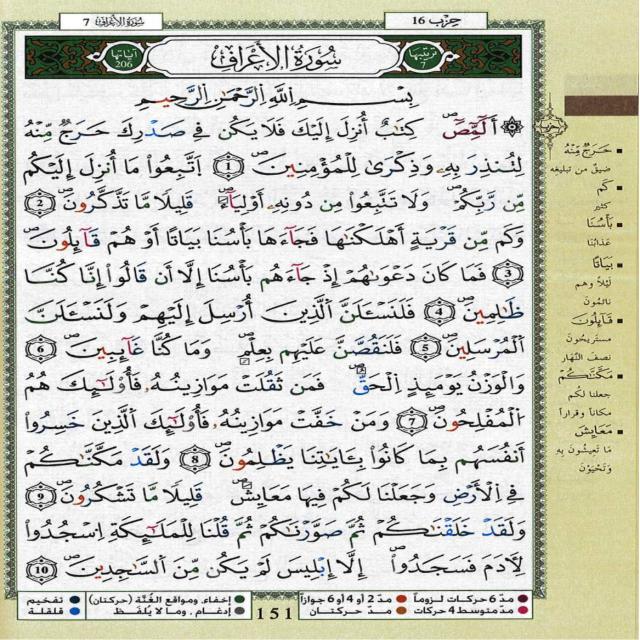 حِزْب 16
سُورَةُ الأَعْرَافِ 7
ترتيبها 7
سُورَةُ الأَعْرَافِ
آياتها 206
بِسْمِ اللَّهِ الرَّحْمَٰنِ الرَّحِيمِ
أَلَٓمِّٓصَٓ كِتَٰبٌ أُنزِلَ إِلَيْكَ فَلَا يَكُن فِي صَدْرِكَ حَرَجٌ مِّنْهُ
لِتُنذِرَ بِهِۦ وَذِكْرَىٰ لِلْمُؤْمِنِينَ 1 اِتَّبِعُوا مَا أُنزِلَ إِلَيْكُم
مِّن رَّبِّكُمْ وَلَا تَتَّبِعُوا مِن دُونِهِۦ أَوْلِيَآءَ قَلِيلًا مَّا تَذَّكَّرُونَ 2
وَكَم مِّن قَرْيَةٍ أَهْلَكْنَٰهَا فَجَآءَهَا بَأْسُنَا بَيَاتًا أَوْ هُمْ قَآئِلُونَ
3 فَمَا كَانَ دَعْوَىٰهُمْ إِذْ جَآءَهُم بَأْسُنَا إِلَّا أَن قَالُوا إِنَّا كُنَّا
ظَٰلِمِينَ 4 فَلَنَسْـَٔلَنَّ الَّذِينَ أُرْسِلَ إِلَيْهِمْ وَلَنَسْـَٔلَنَّ
اَلْمُرْسَلِينَ 5 فَلَنَقُصَّنَّ عَلَيْهِم بِعِلْمٍ وَمَا كُنَّا غَآئِبِينَ 6
وَالْوَزْنُ يَوْمَئِذٍ اِلْحَقُّ فَمَن ثَقُلَتْ مَوَٰزِينُهُۥ فَأُوْلَٰٓئِكَ هُمُ
اَلْمُفْلِحُونَ 7 وَمَنْ خَفَّتْ مَوَٰزِينُهُۥ فَأُوْلَٰٓئِكَ الَّذِينَ خَسِرُوا
أَنفُسَهُم بِمَا كَانُوا بِـَٔايَٰتِنَا يَظْلِمُونَ 8 وَلَقَدْ مَكَّنَّٰكُمْ
فِي اِلْأَرْضِ وَجَعَلْنَا لَكُمْ فِيهَا مَعَٰيِشَ قَلِيلًا مَّا تَشْكُرُونَ 9
وَلَقَدْ خَلَقْنَٰكُمْ ثُمَّ صَوَّرْنَٰكُمْ ثُمَّ قُلْنَا لِلْمَلَٰٓئِكَةِ اِسْجُدُوا
لِأٓدَمَ فَسَجَدُوا إِلَّا إِبْلِيسَ لَمْ يَكُن مِّنَ اَلسَّٰجِدِينَ 10
حَرَجٌ مِّنْهُ
ضيقٌ من تبليغه
كَم
كثير
بَأْسُنَا
عَذَابُنَا
بَيَاتًا
لَيْلًا وهم
نائمُون
قَآئِلُونَ
مستريحُون
نصف النَّهار
مَكَّنَّٰكُمْ
جعلنا لكم
مكاناً وقراراً
مَعَٰيِشَ
مَا تَعِيشُون بِهِ
وَتَحْيَوْنَ
مدّ 6 حركات لـزوماً
مدّ 2 أو 4 أو 6 جوازاً
إخفاء، ومواقع الغُنَّة (حركتان)
تفخيم
مدّ متوسط 4 حركات
مـدّ حركتــان
إدغـام، ومـا لا يُلفَـظ
قلقلة
151